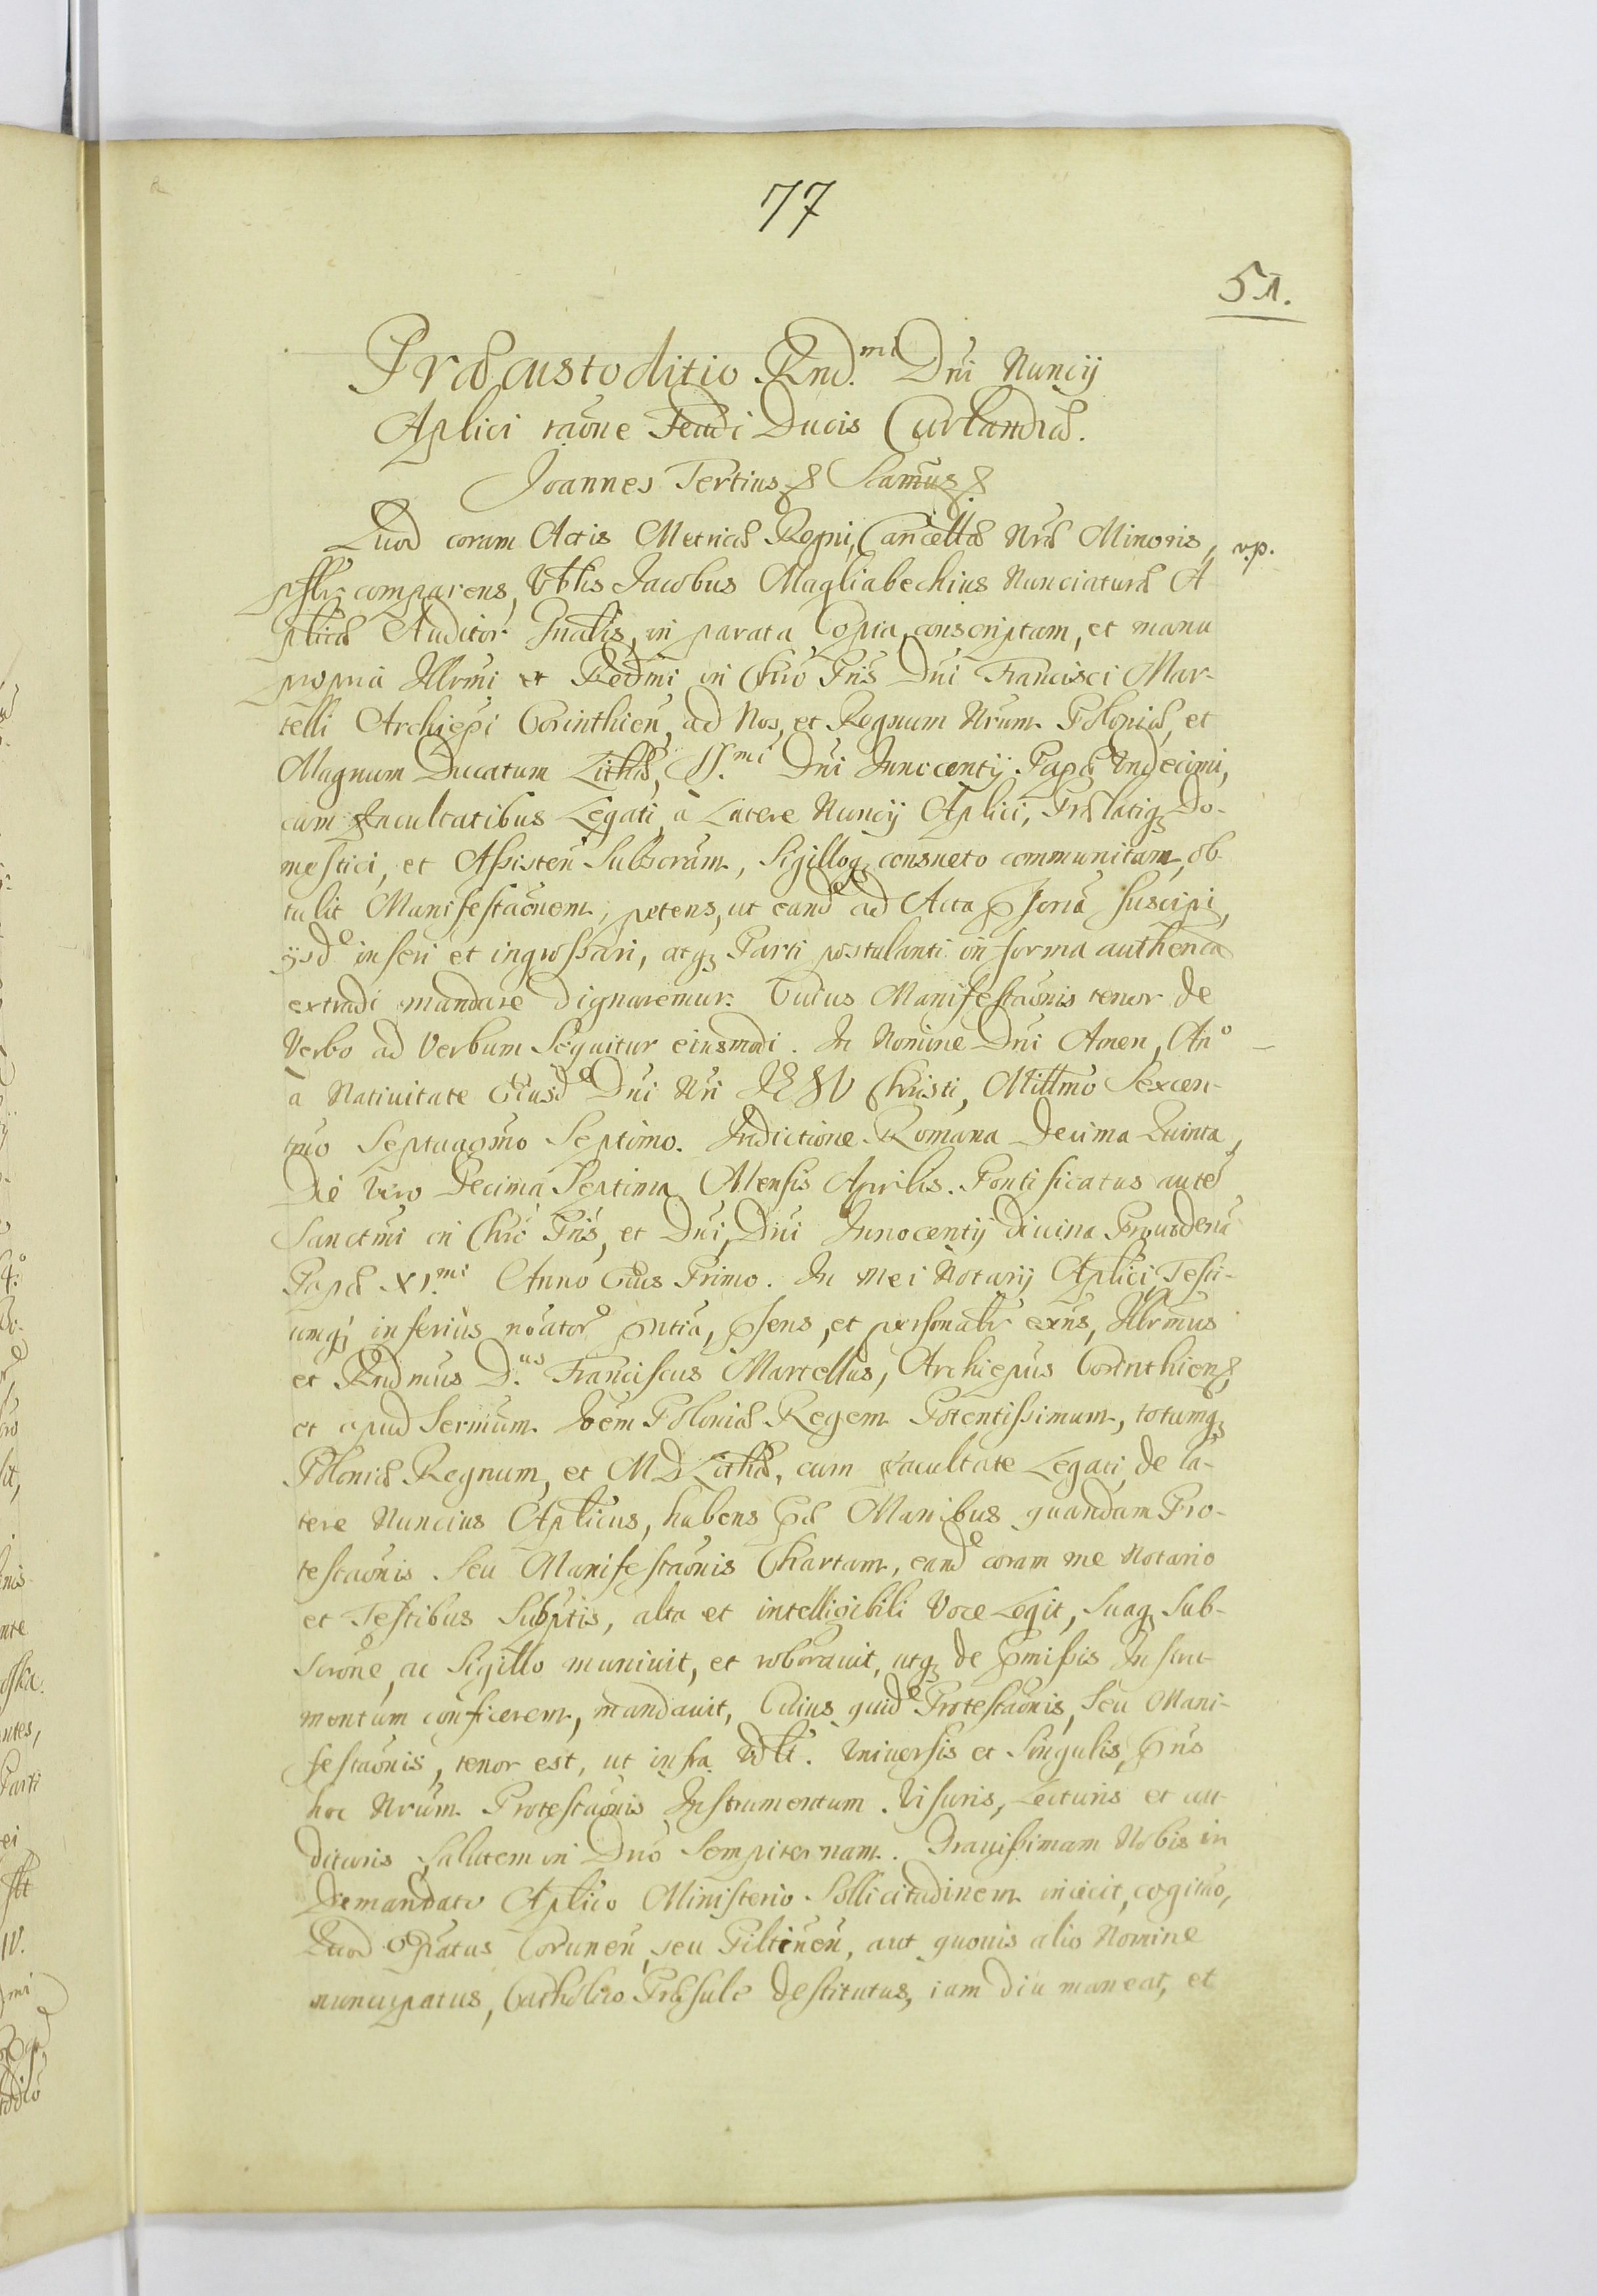 77
51.
Præcustoditio Rnd.mi Dni Nuncij
Aplici raõne Feudi Ducis Curlandiæ.
Joannes Tertius & Scamus &.
Quod coram Actis Metricæ Regni, Cancellæ Nræ Minoris, v.p.
psslr comparens, Nblis Jacobus Magliabechius Nunciaturæ A-
plicæ Auditor Gnalis, in parata Copia conscriptam, et manu
propria Illrmi et Redmi in Chro Pris Dni Francisci Mar-
telli Archiepi Corinthien, ad Nos, et Regnum Nrum Poloniæ, et
Magnum Ducatum Lithæ, SS.mi Dni Innocentij Papæ Undecimi,
cum Facultatibus Legati, à Latere Nuncij Aplici, Prælatiq Do-
mestici, et Assisten Subscram, Sigilloq consueto communitam, ob-
tulit Manifestaõnem, petens, ut eand ad Acta pñtia suscipi,
ijsd inseri et ingrossari, atq Parti postulanti in forma authenca
extradi mandare dignaremur. Cuius Manifestaõnis tenor de
Verbo ad Verbum Sequitur eiusmodi. In Nomine Dni Amen, Anº
à Natiuitate Eiusd Dni Nri JESV Christi, Millmo Sexcen-
tmo Septuagmo Septimo. Indictione Romana Decima Quinta,
Die Vero Decima Septima Mensis Aprilis. Pontificatus autē
Sanctmi in Chro Pris, et Dni, Dni Innocentij diuina Prouidena
Papæ XI.mi Anno Eius Primo. In Mei Notarij Aplici, Testi-
umq inferius noator pñtia, psens, et personalr exñs, Illrmus
et Rndmus D.us Franciscus Martellus, Archiepus Corinthien,
et apud Sermum Joem Poloniæ Regem Potentissimum, totumq
Poloniæ Regnum, et M D Lithæ, cum Facultate Legati, de la-
tere Nuncius Aplicus, habens præ Manibus quandam Pro-
testaõnis Seu Manifestaõnis Chartam, eand coram me Notario
et Testibus Subptis, alta et intelligibili Voce Legit, Suaq Sub-
scrone, ac Sigillo muniuit, et roborauit, utq de pmissis Instru-
mentum conficerem, mandauit, Cuius quid Protestaõnis, Seu Mani-
festaõnis, tenor est, ut infra Vdlt. Vniuersis et Singulis, pñs
hoc Nrum Protestaõnis Instrumentum Visuris, Lecturis et au-
dituris Salutem in Dno Sempiternam. Grauissimam Nobis in
Demandato Aplico Ministerio Sollicitudinem iniecit, cogitao,
Quod Epatus Coronen, seu Piltinen, aut quouis alio Nomine
nuncupatus, Catholico Præsule destitutus, iam diu maneat, et